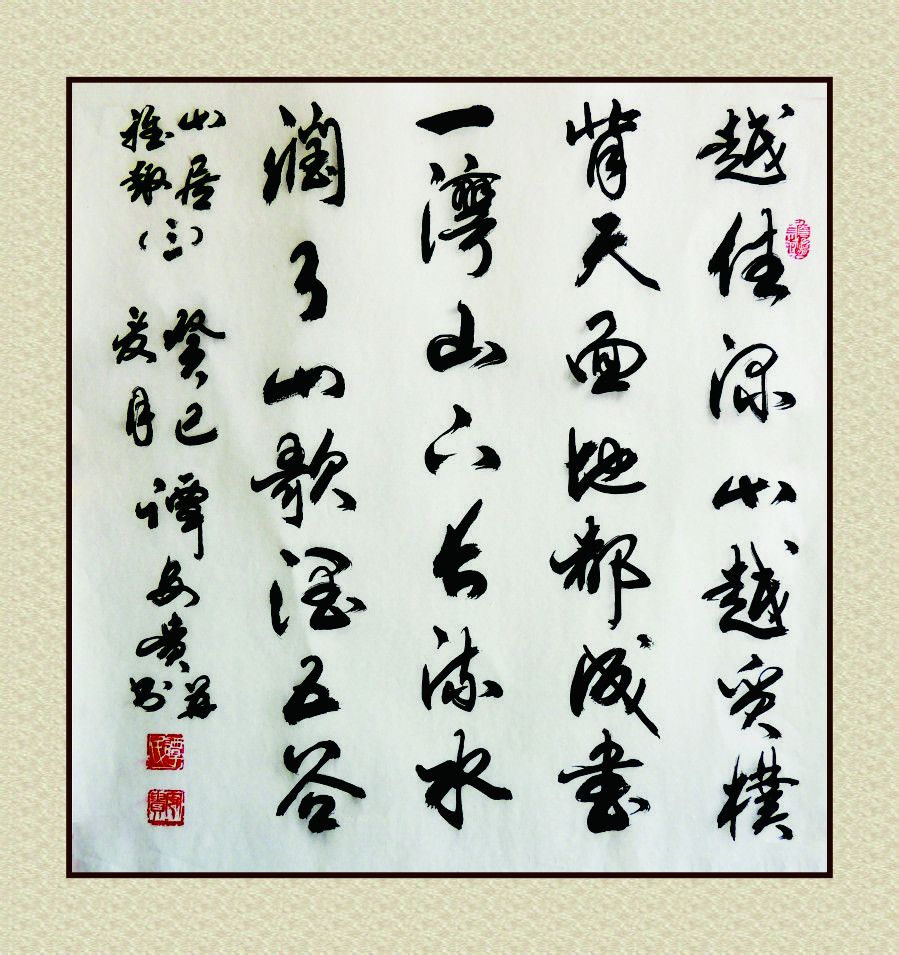 越住深山越質樸
背天面地都成書
一灣山下長流水
潤了山歌潤五谷
山居
雅趣
(三)
癸巳
夏月
譚安貴
并书